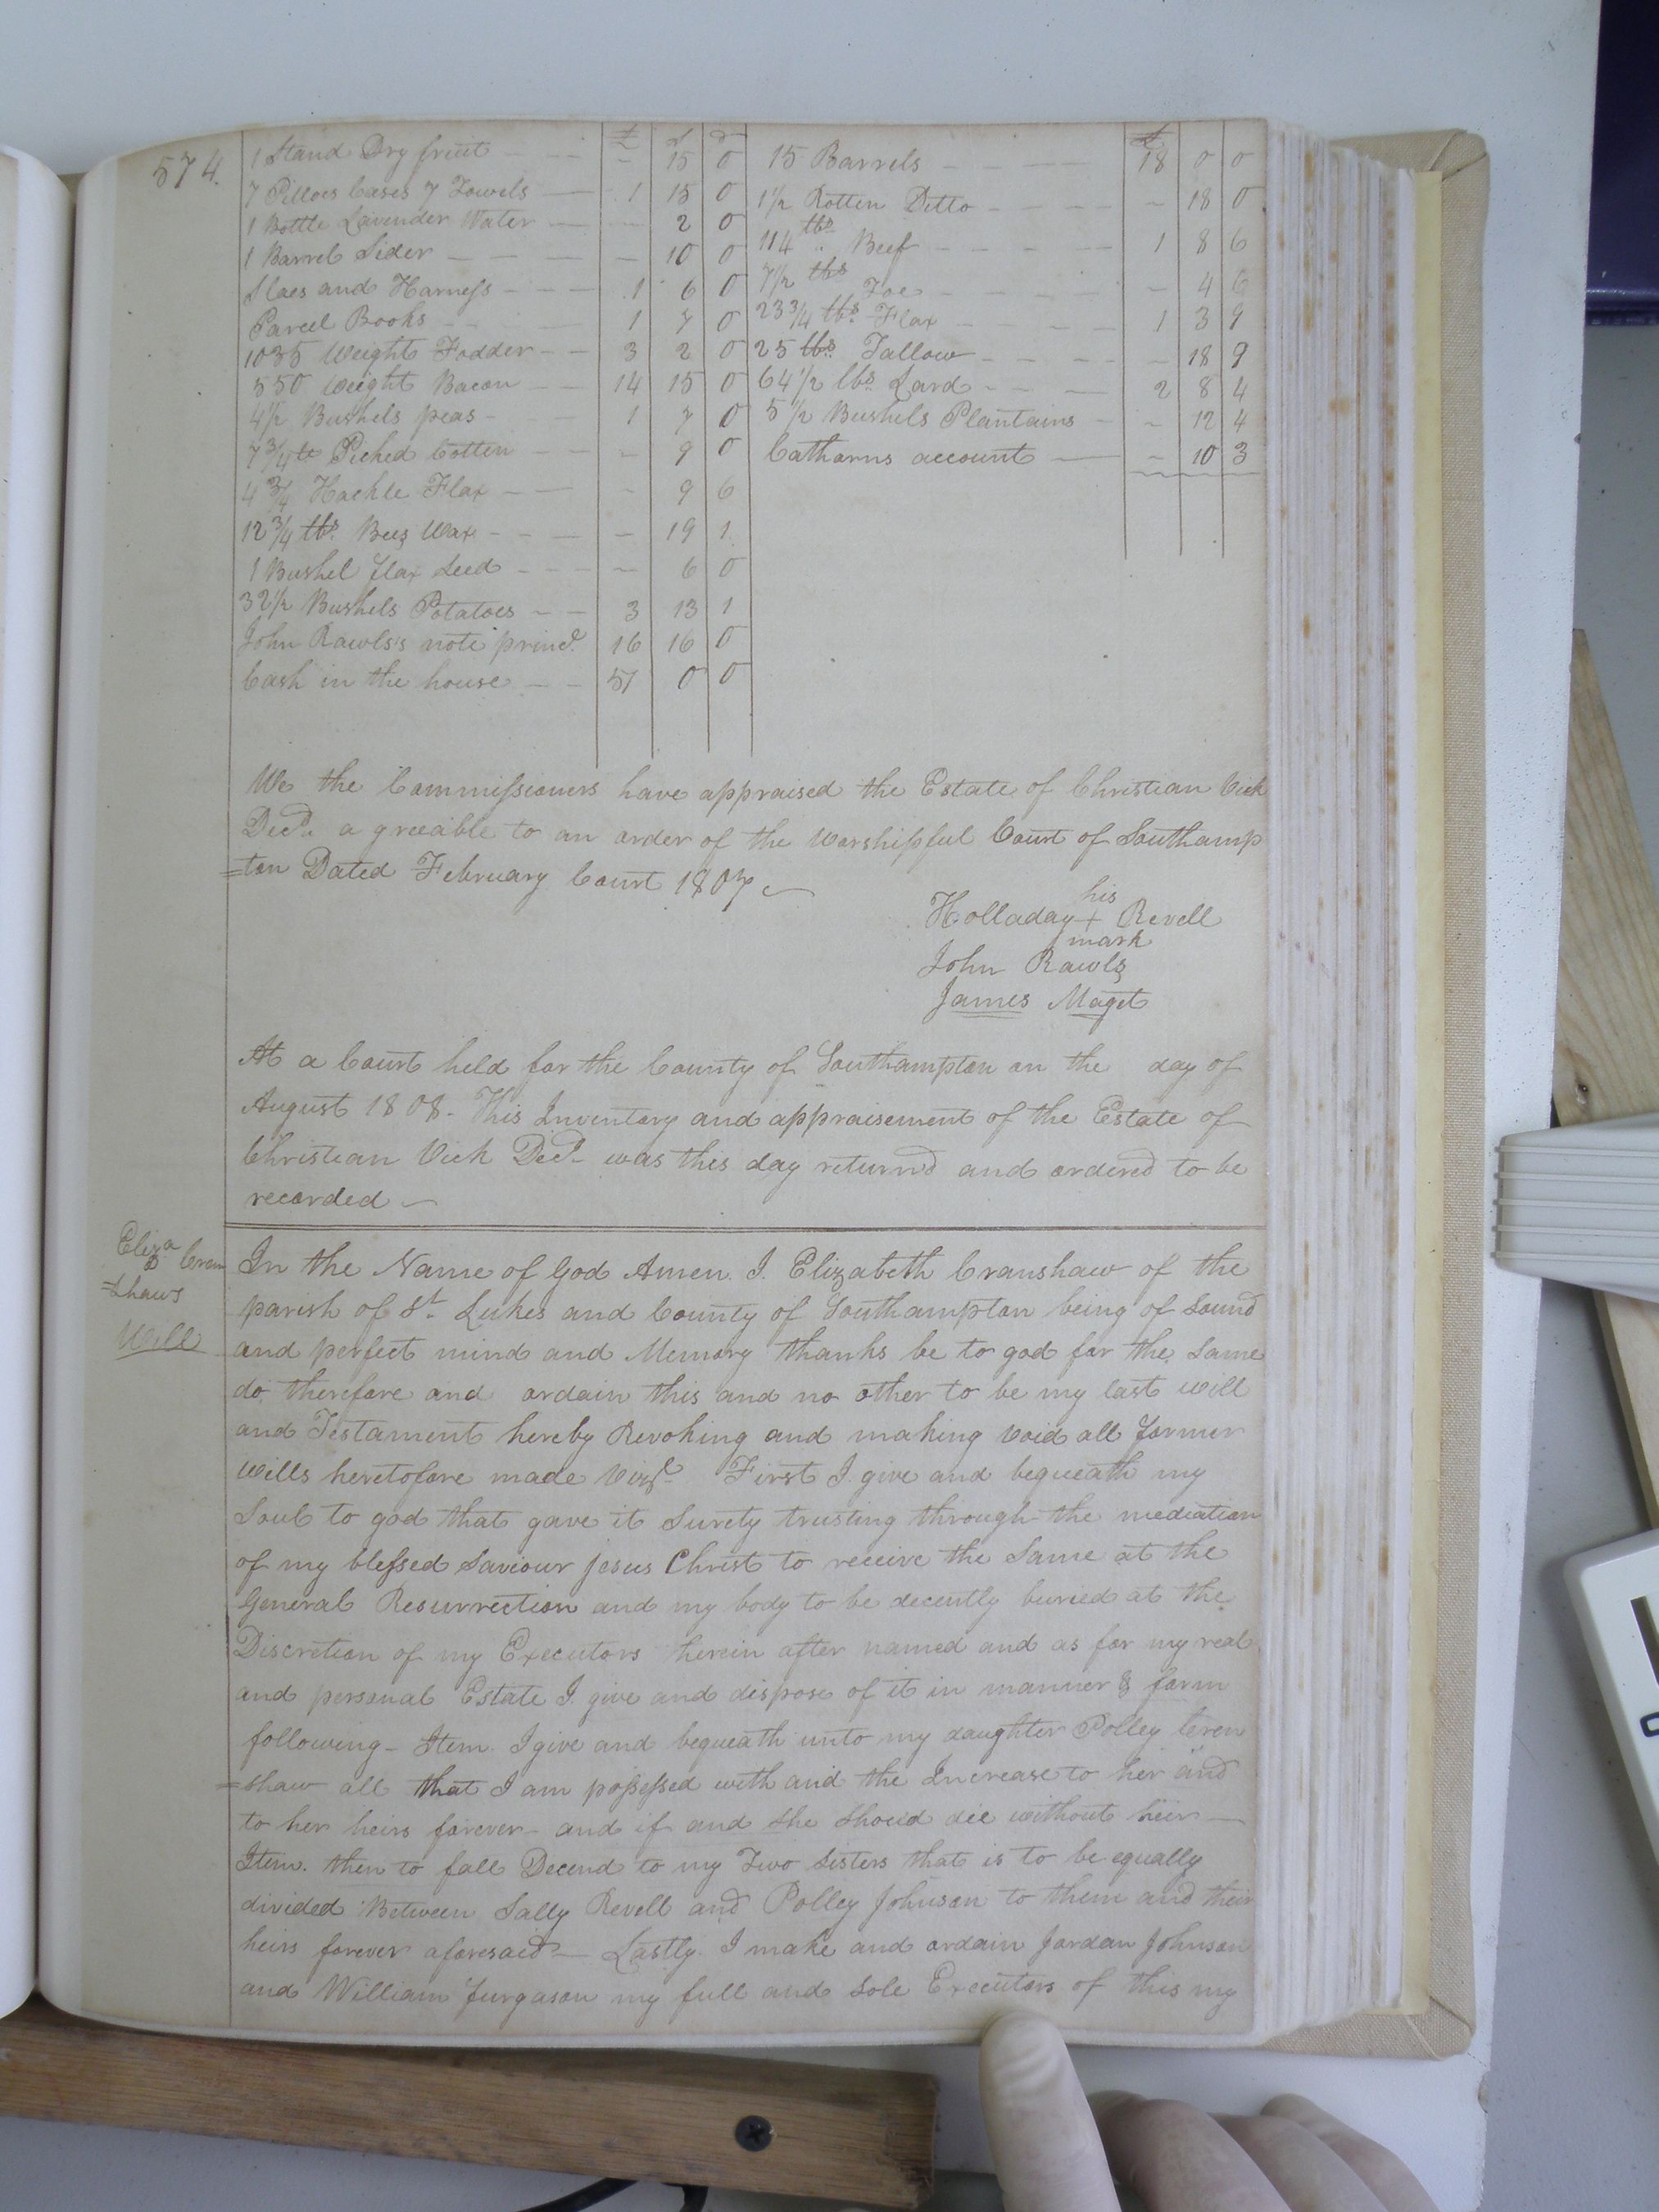 574.
£ s d
1 Stand Dry fruit - - - - 15 0
7 Pillows Cases 7 Towels — 1 15 0
1 Bottle Lavender Water — - 2 0
1 Barrel Sider - - - - - 10 0
Slaes and Harness - - - 1 6 0
Parcel Books - - - 1 7 0
1035 Weight Fodder - - 3 2 0
550 Weight Bacon - - 14 15 0
4½ Bushels peas - - 1 7 0
7¾ lb Picked Cotten - - - 9 0
4¾ Hackle Flax - - - 9 6
12¾ lbs Bees Wax - - - - 19 1
1 Bushel flax Seed - - - - 6 0
32½ Bushels Potatoes - - 3 13 1
John Rawls's note princl. 16 16 0
Cash in the house - - 51 0 0
£
15 Barrels - - - 18 0 0
1½ Rotten Ditto - - - - - 18 0
114 lbs Beef - - - - 1 8 6
7½ lbs Toe - - - - - 4 6
23¾ lbs Flax - - - - 1 3 9
25 lbs Tallow - - - - - 18 9
64½ lbs Lard - - - 2 8 4
5½ Bushels Plantains - - 12 4
Catharns account — - 10 3
We the Commissioners have appraised the Estate of Christian Vick
Decd. a greeable to an order of the Worshipful Court of Southamp
=ton Dated February Court 1807
his
Holladay + Revell
mark
John Rawls
James Maget
At a Court held for the County of Southampton on the day of
August 1808. This Inventory and appraisement of the Estate of
Christian Vick Decd. was this day returnd and ordered to be
recorded
Eliza Cran
=shaws
Will
In the Name of God Amen. I. Elizabeth Cranshaw of the
parish of St. Lukes and County of Southampton being of Sound
and perfect mind and Memory thanks be to god for the Same
do therefore and ordain this and no other to be my last will
and Testament hereby Revoking and making void all former
wills heretofore made Vizt. First I give and bequeath my
Soul to god that gave it Surety trusting through the mediation
of my blessed Saviour Jesus Christ to receive the Same at the
General Resurrection and my body to be decently buried at the
Discretion of my Executors herein after named and as for my real
and personal Estate I give and dispose of it in manner & form
following - Item. I give and bequeath unto my daughter Polley Cren
=shaw all that I am possessed with and the Increase to her and
to her heirs forever - and if and she Should die without heir —
Item. then to fall Decend to my Two Sisters that is to be equally
divided Between Sally Revell and Polley Johnson to them and their
heirs forever aforesaid — Lastly. I make and ordain Jordan Johnson
and William Furgason my full and Sole Executors of this my